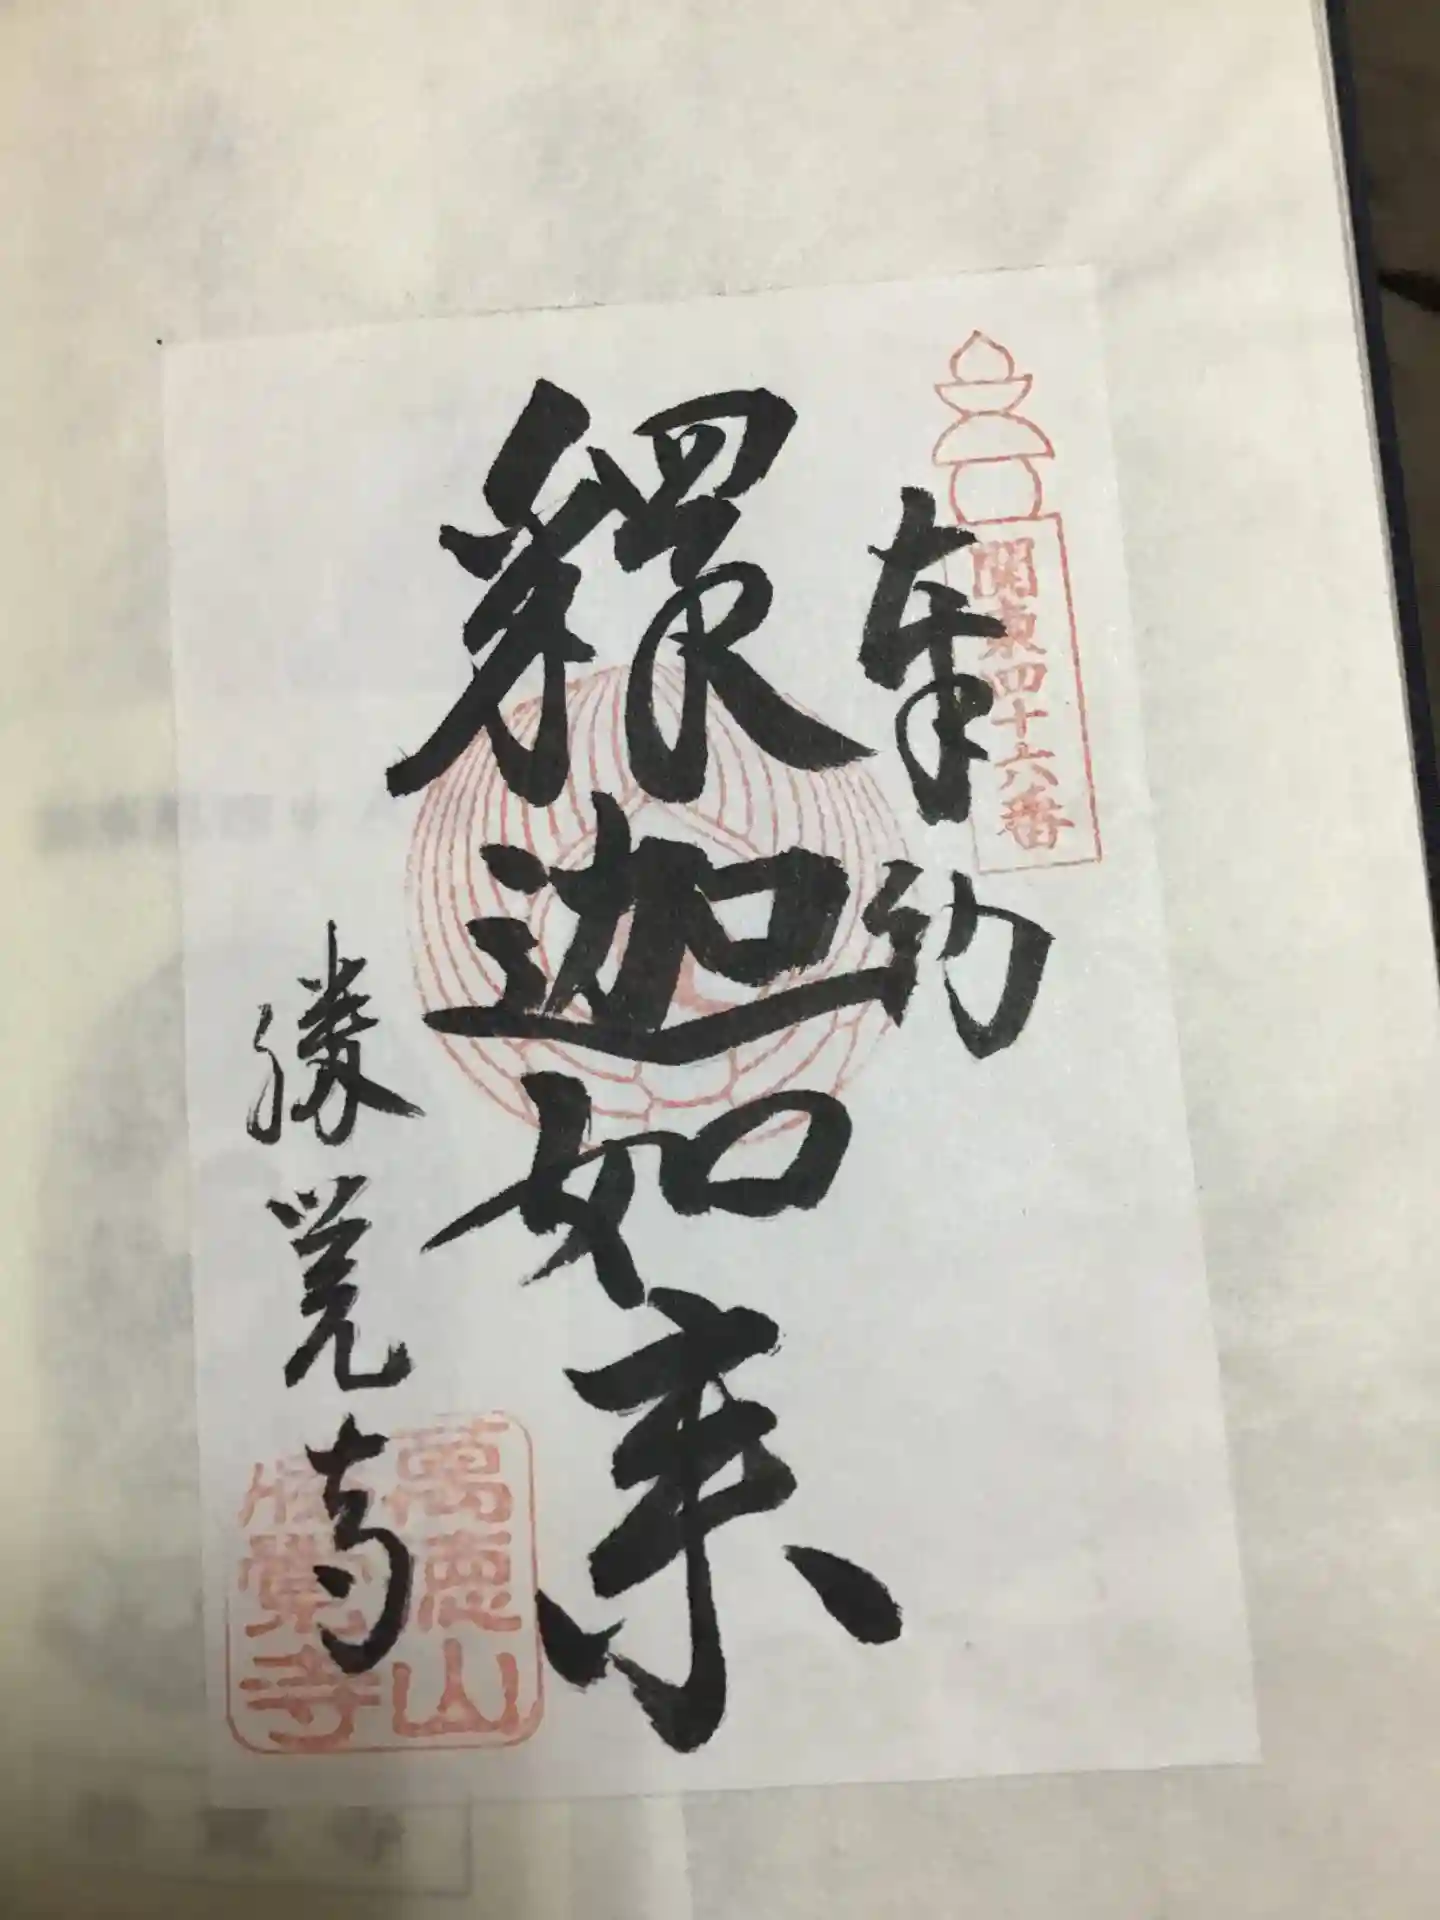 関東四十六番
奉納
釋迦如来
勝覚寺
萬徳山
勝覺寺